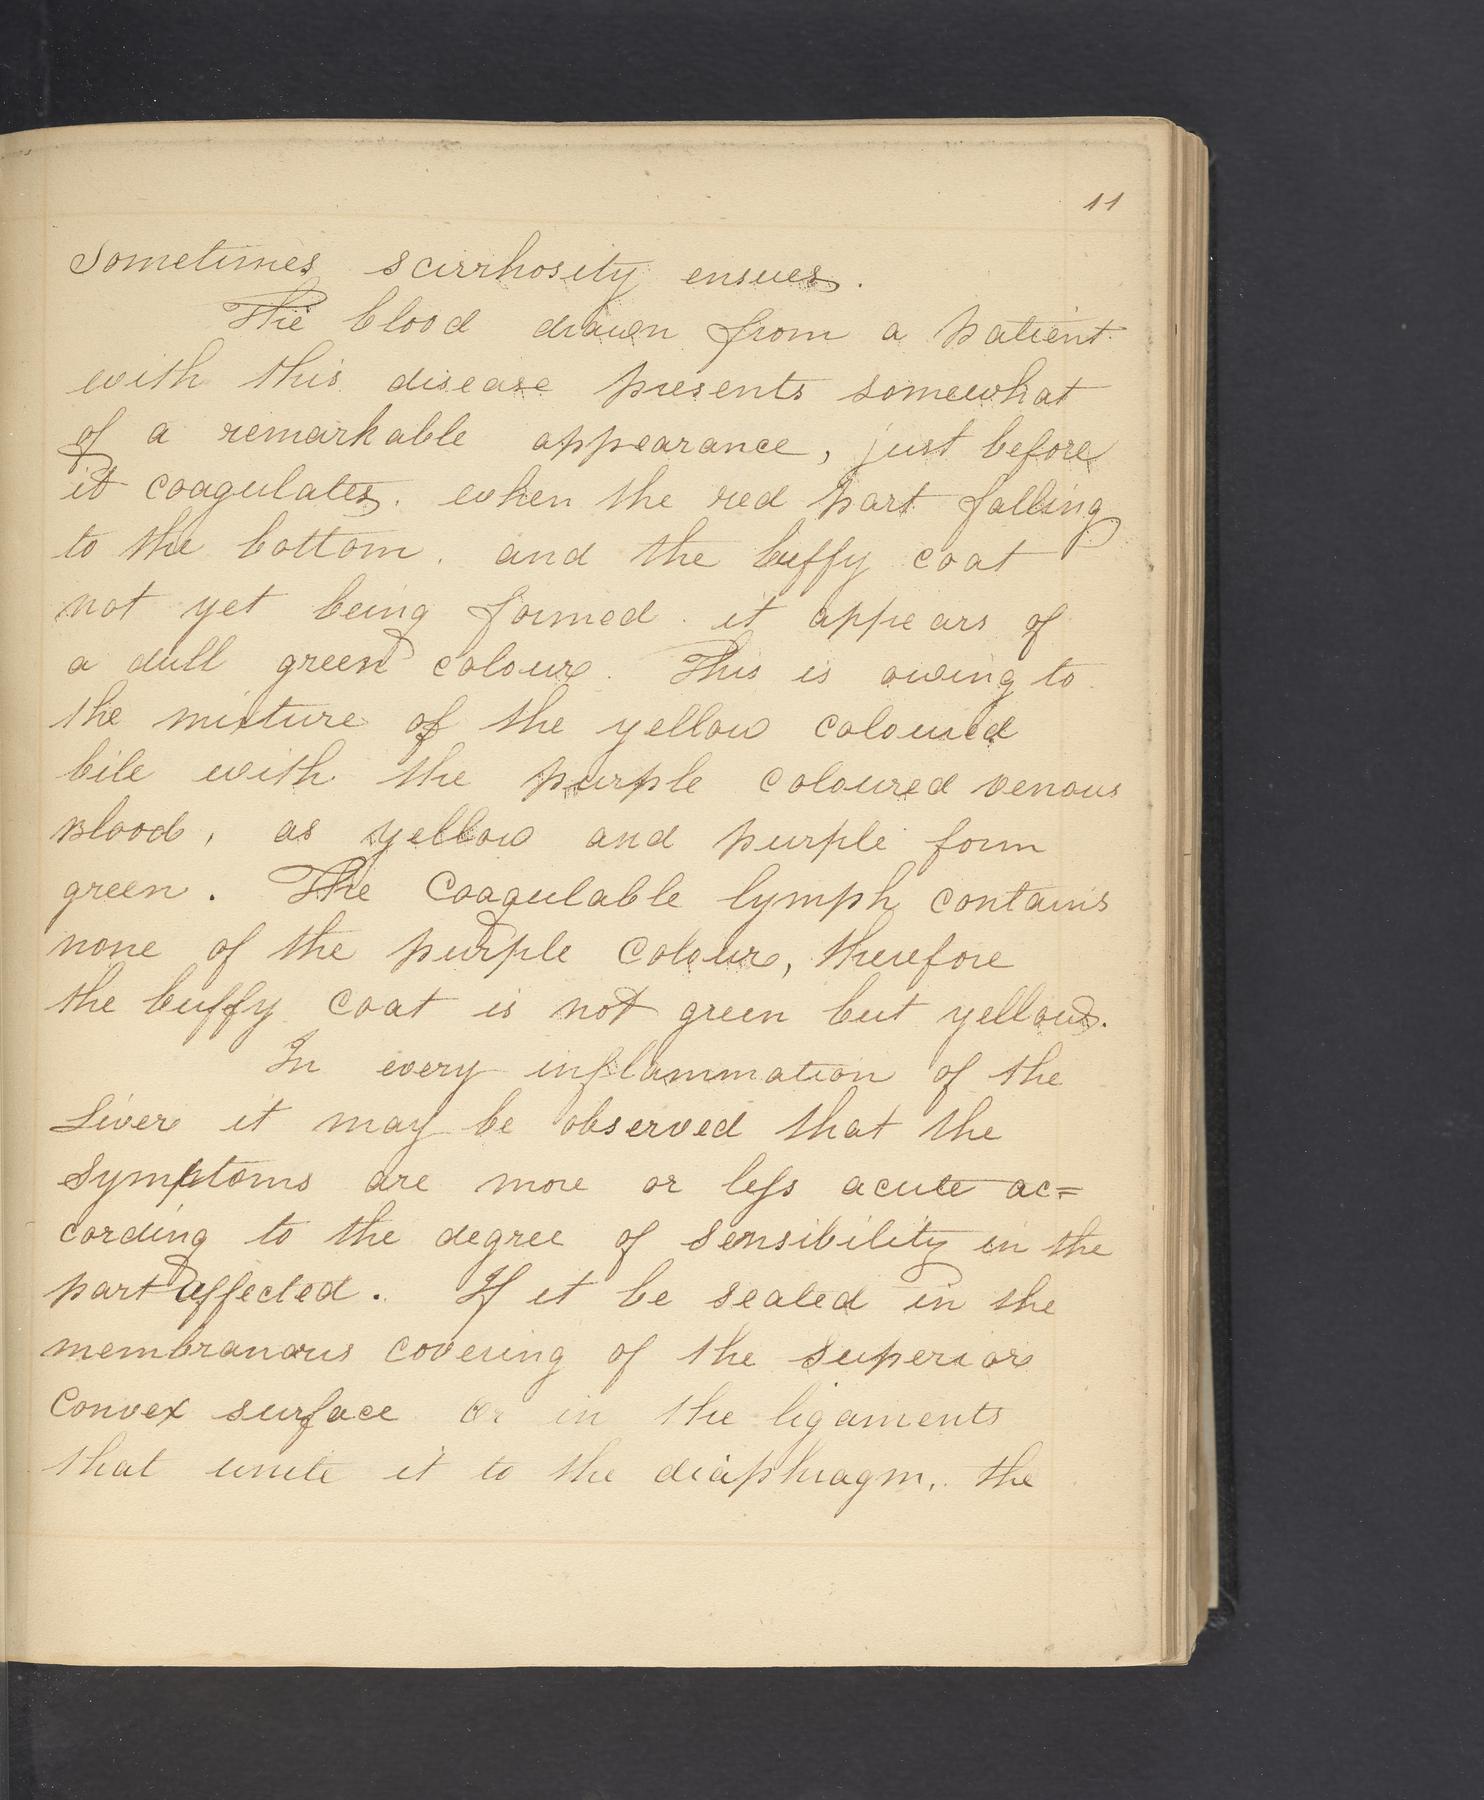 11
Sometimes scirrhosity ensues.
The blood drawn from a patient
with this disease presents somewhat
of a remarkable appearance, just before
it coagulates. when the red part falling
to the bottom. and the buffy coat
not yet being formed. it appears of
a dull green colour. This is owing to
the mixture of the yellow coloured
bile with the purple coloured venous
Blood, as yellow and purple form
green. The Coagulable lymph contains
none of the purple colour, therefore
the buffy coat is not green but yellow.
In every inflammation of the
Liver it may be observed that the
Symptoms are more or less acute ac=
cording to the degree of sensibility in the
part affected. If it be seated in the
membranous covering of the superior
convex surface or in the ligaments
that unite it to the diaphragm, the